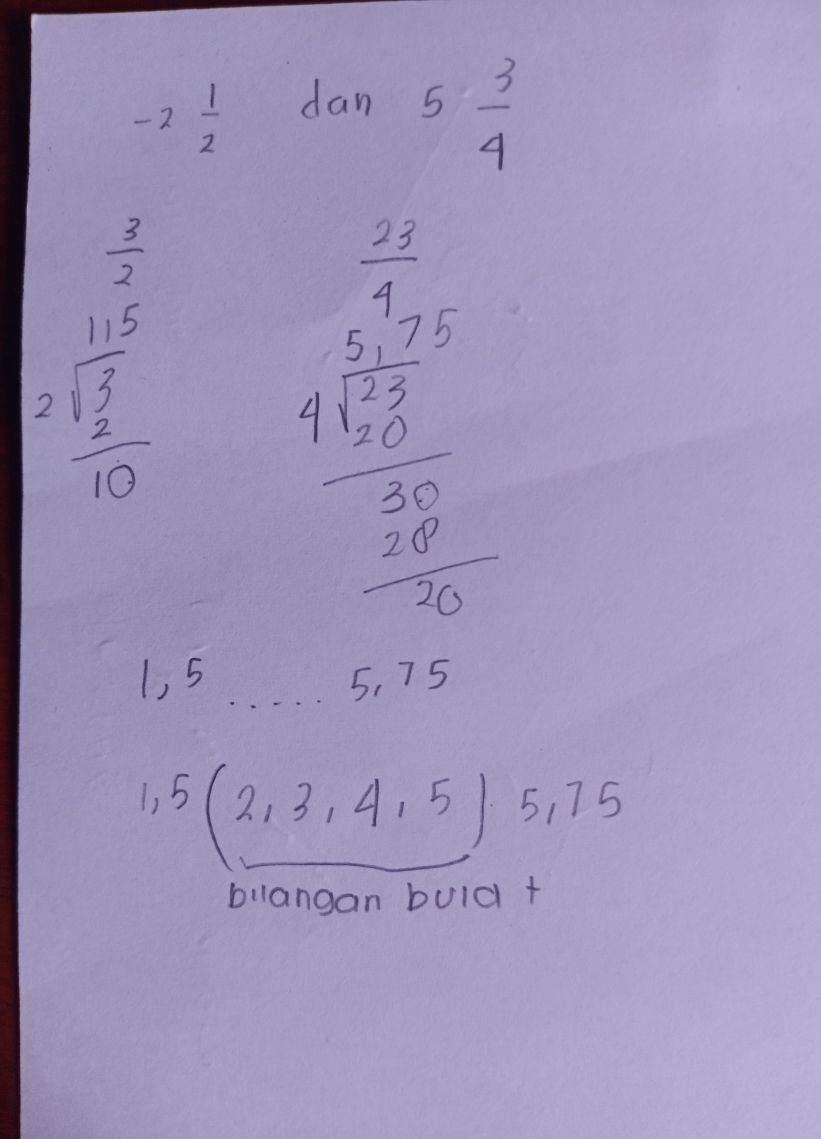 -2 1/2 dan 5 3/4
3/2 23/4
1,5 5,75
2 √3 4 √23
2 20
10 30
28
20
1,5 ..... 5,75
1,5 (2, 3, 4, 5) 5,75
bilangan bulat